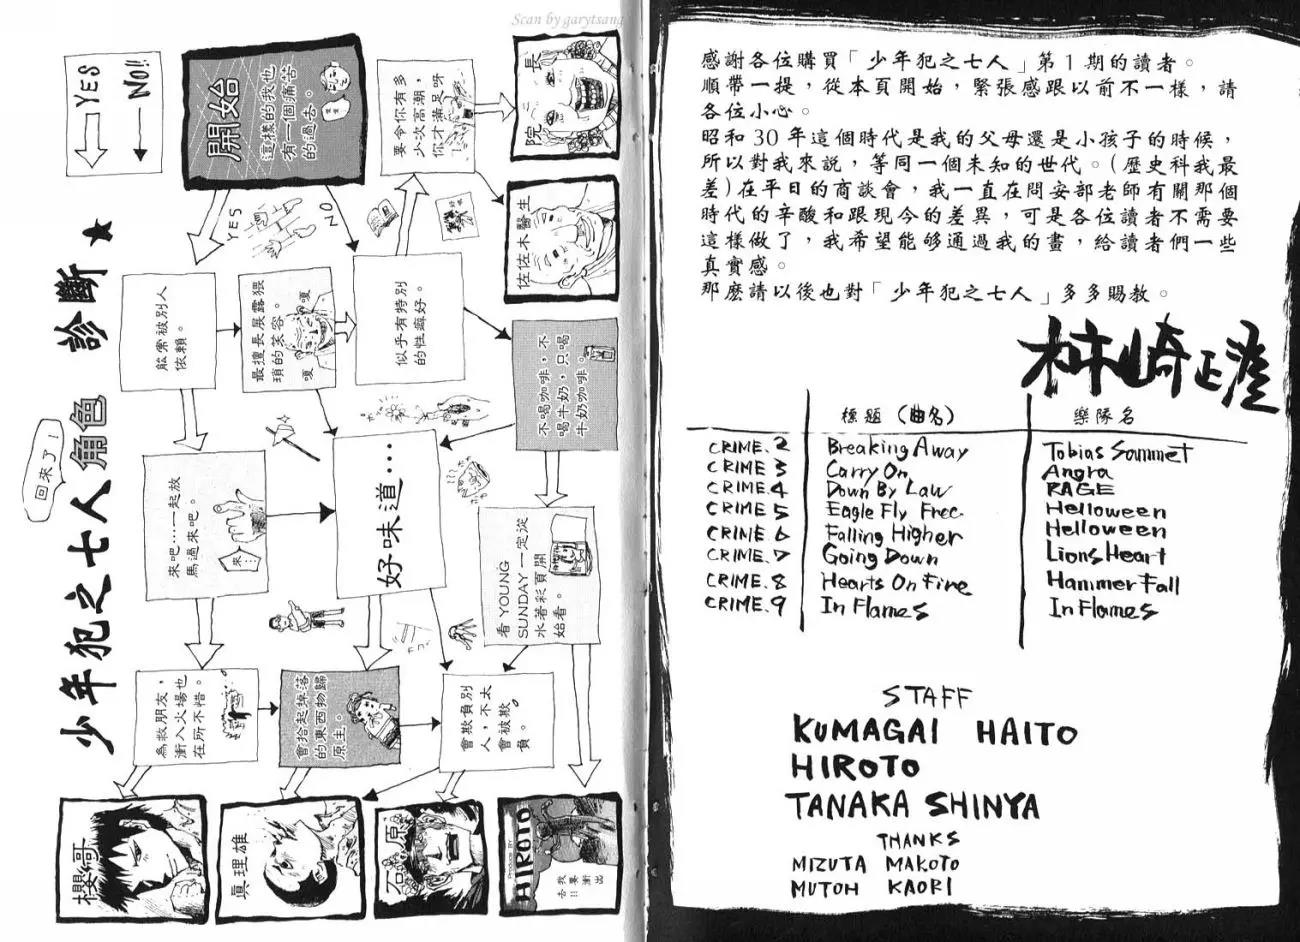 Scan by garytsang
感謝各位購買「少年犯之七人」第1期的讀者。
順帶一提，從本頁開始，緊張感跟以前不一樣，請
各位小心。
昭和30年這個時代是我的父母還是小孩子的時候，
所以對我來說，等同一個未知的世代。（歷史科我最
差）在平日的商談會，我一直在問安部老師有關那個
時代的辛酸和跟現今的差異，可是各位讀者不需要
這樣做了，我希望能够通過我的畫，給讀者們一些
真實感。
那麼請以後也對「少年犯之七人」多多賜教。
標題（曲名） 樂隊名
CRIME.2 Breaking Away Tobias Sammet
CRIME 3 Carry On Angra
CRIME.4 Down By Law RAGE
CRIME 5 Eagle Fly Free Helloween
CRIME 6 Falling Higher Helloween
CRIME.7 Going Down Lions Heart
CRIME.8 Hearts On Fire Hammer Fall
CRIME.9 In Flames In Flames
STAFF
KUMAGAI HAITO
HIROTO
TANAKA SHINYA
THANKS
MIZUTA MAKOTO
MUTOH KAORI
少年犯之七人角色診斷★
回來了！
YES
NO!!
開始
這樣的我也
有一個痛苦
的過去。
YES
NO
要令你有多
少次高潮，
你才滿足呀
院長
佐佐木醫生
經常被別人
依賴。
最擅長展露猥
瑣的笑容。
嗄
嗄
似乎有特別
的性癖好。
不喝咖啡，不
喝牛奶，只喝
牛奶咖啡。
來吧…一起放
馬過來吧。
來…
好味道…
???
看YOUNG
SUNDAY一定從
水著彩頁開
始看。
為救朋友，
衝入火場也
在所不惜。
會拾起掉落
的東西物歸
原主。
會欺負別
人，不太
會被欺
負。
櫻哥
真理雄
石原
Produce BY
HIROTO
我要衝出
去!!